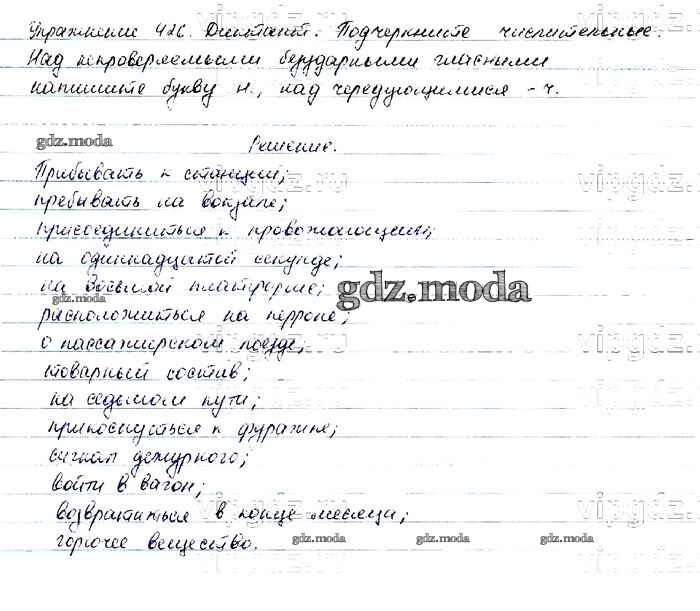 Упражнение 426. Диктант. Подчеркните числительные.
Над непроверяемыми безударными гласными
напишите букву н., над чередующимися - ч.
gdz.moda
Решение.
vipgdz.ru
Прибывать к станции;
пребывать на вокзале;
присоединиться к провожающим;
на одиннадцатой секунде;
на восьмой платформе;
gdz.moda
gdz.moda
расположиться на перроне;
о пассажирском поезде;
vipgdz.ru
товарный состав;
на седьмом пути;
прикоснуться к фуражке;
сигнал дежурного;
войти в вагон;
возвратиться в конце месяца;
vipgdz.ru
горючее вещество.
gdz.moda
gdz.moda
gdz.moda